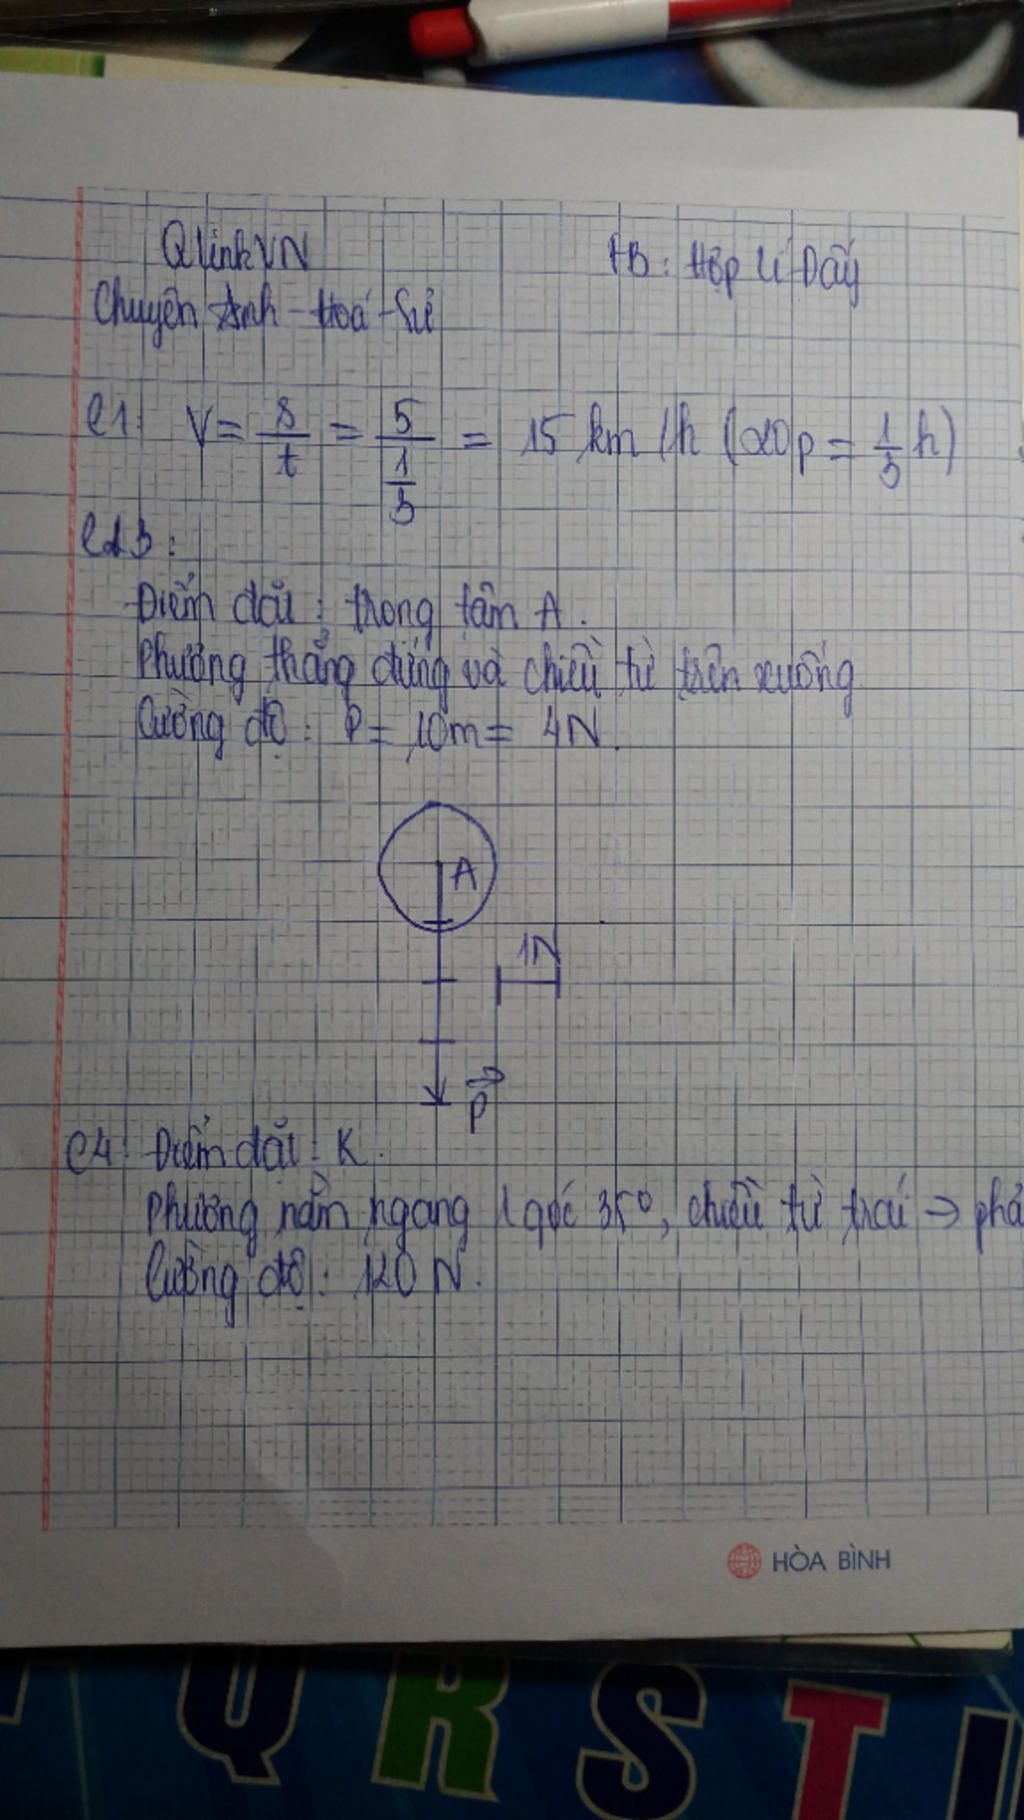 QlinkVN
FB: Hộp Lí Dấy
Chuyên Anh - Hoá - Sử
C1: V = s/t = 5/(1/3) = 15 km/h (20p = 1/3 h)
Điểm đặt: trọng tâm A.
Phương thẳng đứng và chiều từ trên xuống
Cường độ: P = 10m = 4N.
A
1N
P
C4: Điểm đặt: K.
Phương nằm ngang 1 góc 35°, chiều từ trái → phả
Cường độ: 120 N.
HÒA BÌNH
Q R S T